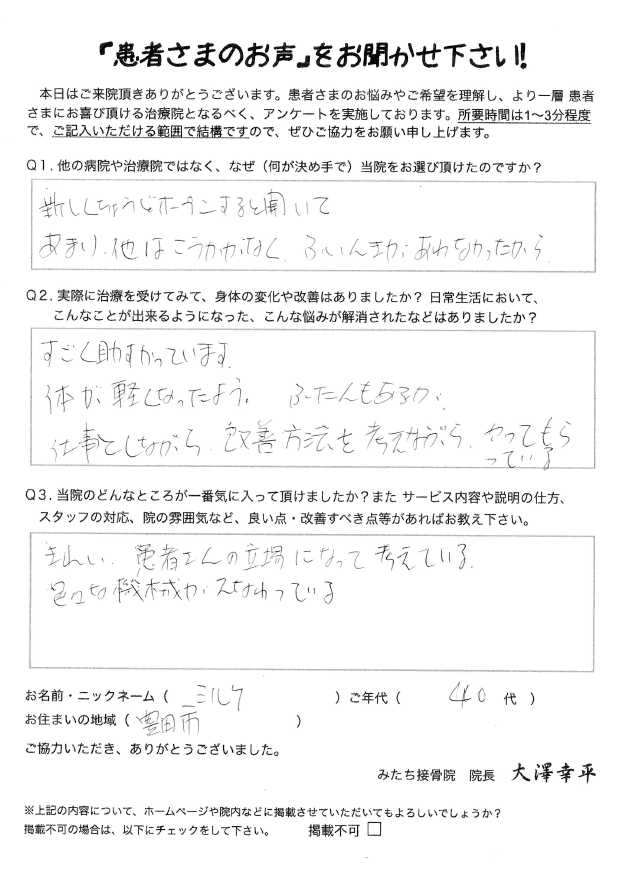 「患者さまのお声」をお聞かせ下さい!
本日はご来院頂きありがとうございます。患者さまのお悩みやご希望を理解し、より一層 患者
さまにお喜び頂ける治療院となるべく、アンケートを実施しております。所要時間は1〜3分程度
で、ご記入いただける範囲で結構ですので、ぜひご協力をお願い申し上げます。
Q1. 他の病院や治療院ではなく、なぜ(何が決め手で)当院をお選び頂けたのですか?
新しくちょうどオープンすると聞いて
あまり、他はこうかがなく、ふいんきがあわなかったから
Q2. 実際に治療を受けてみて、身体の変化や改善はありましたか? 日常生活において、
こんなことが出来るようになった、こんな悩みが解消されたなどはありましたか?
すごく助すかっています。
体が軽くなったよう。 ふたんもあるが、
仕事をしながら、改善方法を考えながら、やってもら
っている
Q3. 当院のどんなところが一番気に入って頂けましたか?また サービス内容や説明の仕方、
スタッフの対応、院の雰囲気など、良い点・改善すべき点等があればお教え下さい。
きれい、患者さんの立場になって考えている。
色々な機械がそなわっている
お名前・ニックネーム( ミルク )ご年代( 40 代 )
お住まいの地域( 豊田市 )
ご協力いただき、ありがとうございました。
みたち接骨院 院長 大澤幸平
※上記の内容について、ホームページや院内などに掲載させていただいてもよろしいでしょうか?
掲載不可の場合は、以下にチェックをして下さい。 掲載不可 □